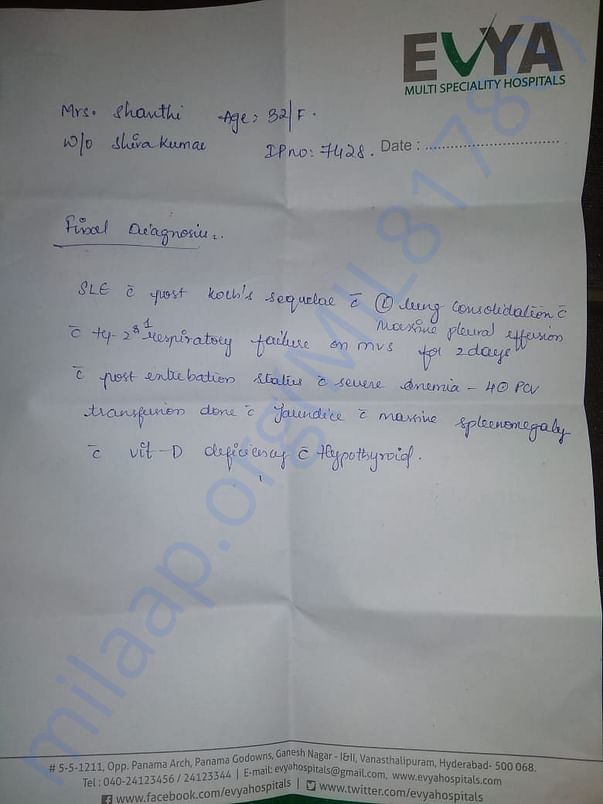 EVYA
MULTI SPECIALITY HOSPITALS
Mrs. Shanthi Age: 32/F.
W/o Shiva Kumar IP no: 7428. Date : ................................
Final Diagnosis:
SLE c̄ post Koch's sequelae c̄ Ⓛ lung Consolidation c̄
massive pleural effusion
c̄ ty-2 & 1 respiratory failure on mvs for 2 days
c̄ post entubation status c̄ severe Anemia - 40 PCV
transfusion done c̄ Jaundice c̄ massive spleenomegaly
c̄ vit-D deficiency c̄ Hypothyroid.
milaap.org/MIL81178
# 5-5-1211, Opp. Panama Arch, Panama Godowns, Ganesh Nagar - I&II, Vanasthalipuram, Hyderabad- 500 068.
Tel : 040-24123456 / 24123344 | E-mail: evyahospitals@gmail.com, www.evyahospitals.com
www.facebook.com/evyahospitals | www.twitter.com/evyahospitals